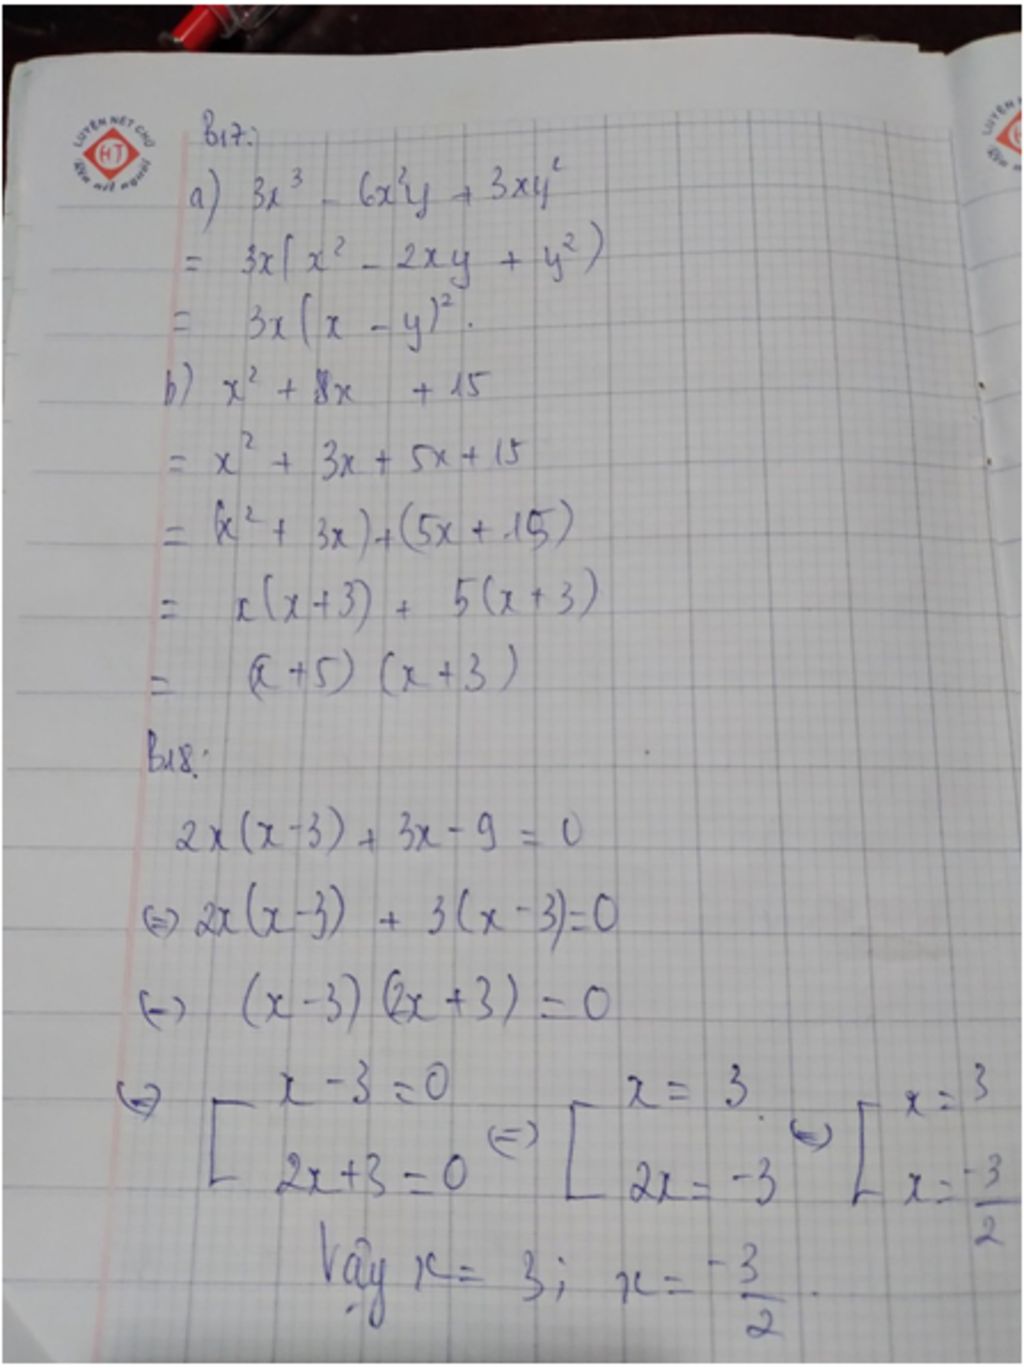 LUYỆN NÉT CHỮ
HT
Rèn nết người
B17:
a) 3x³ - 6x²y + 3xy²
= 3x(x² - 2xy + y²)
= 3x(x - y)².
b) x² + 8x + 15
= x² + 3x + 5x + 15
= (x² + 3x) + (5x + 15)
= x(x+3) + 5(x+3)
= (x+5) (x+3)
B18:
2x(x-3) + 3x - 9 = 0
(=) 2x(x-3) + 3(x-3)=0
(=) (x-3)(2x+3) = 0
(=) [ x - 3 = 0 (=) [ x = 3 (=) [ x = 3
2x+3 = 0 2x = -3 x = -3/2
Vậy x = 3; x = -3/2.